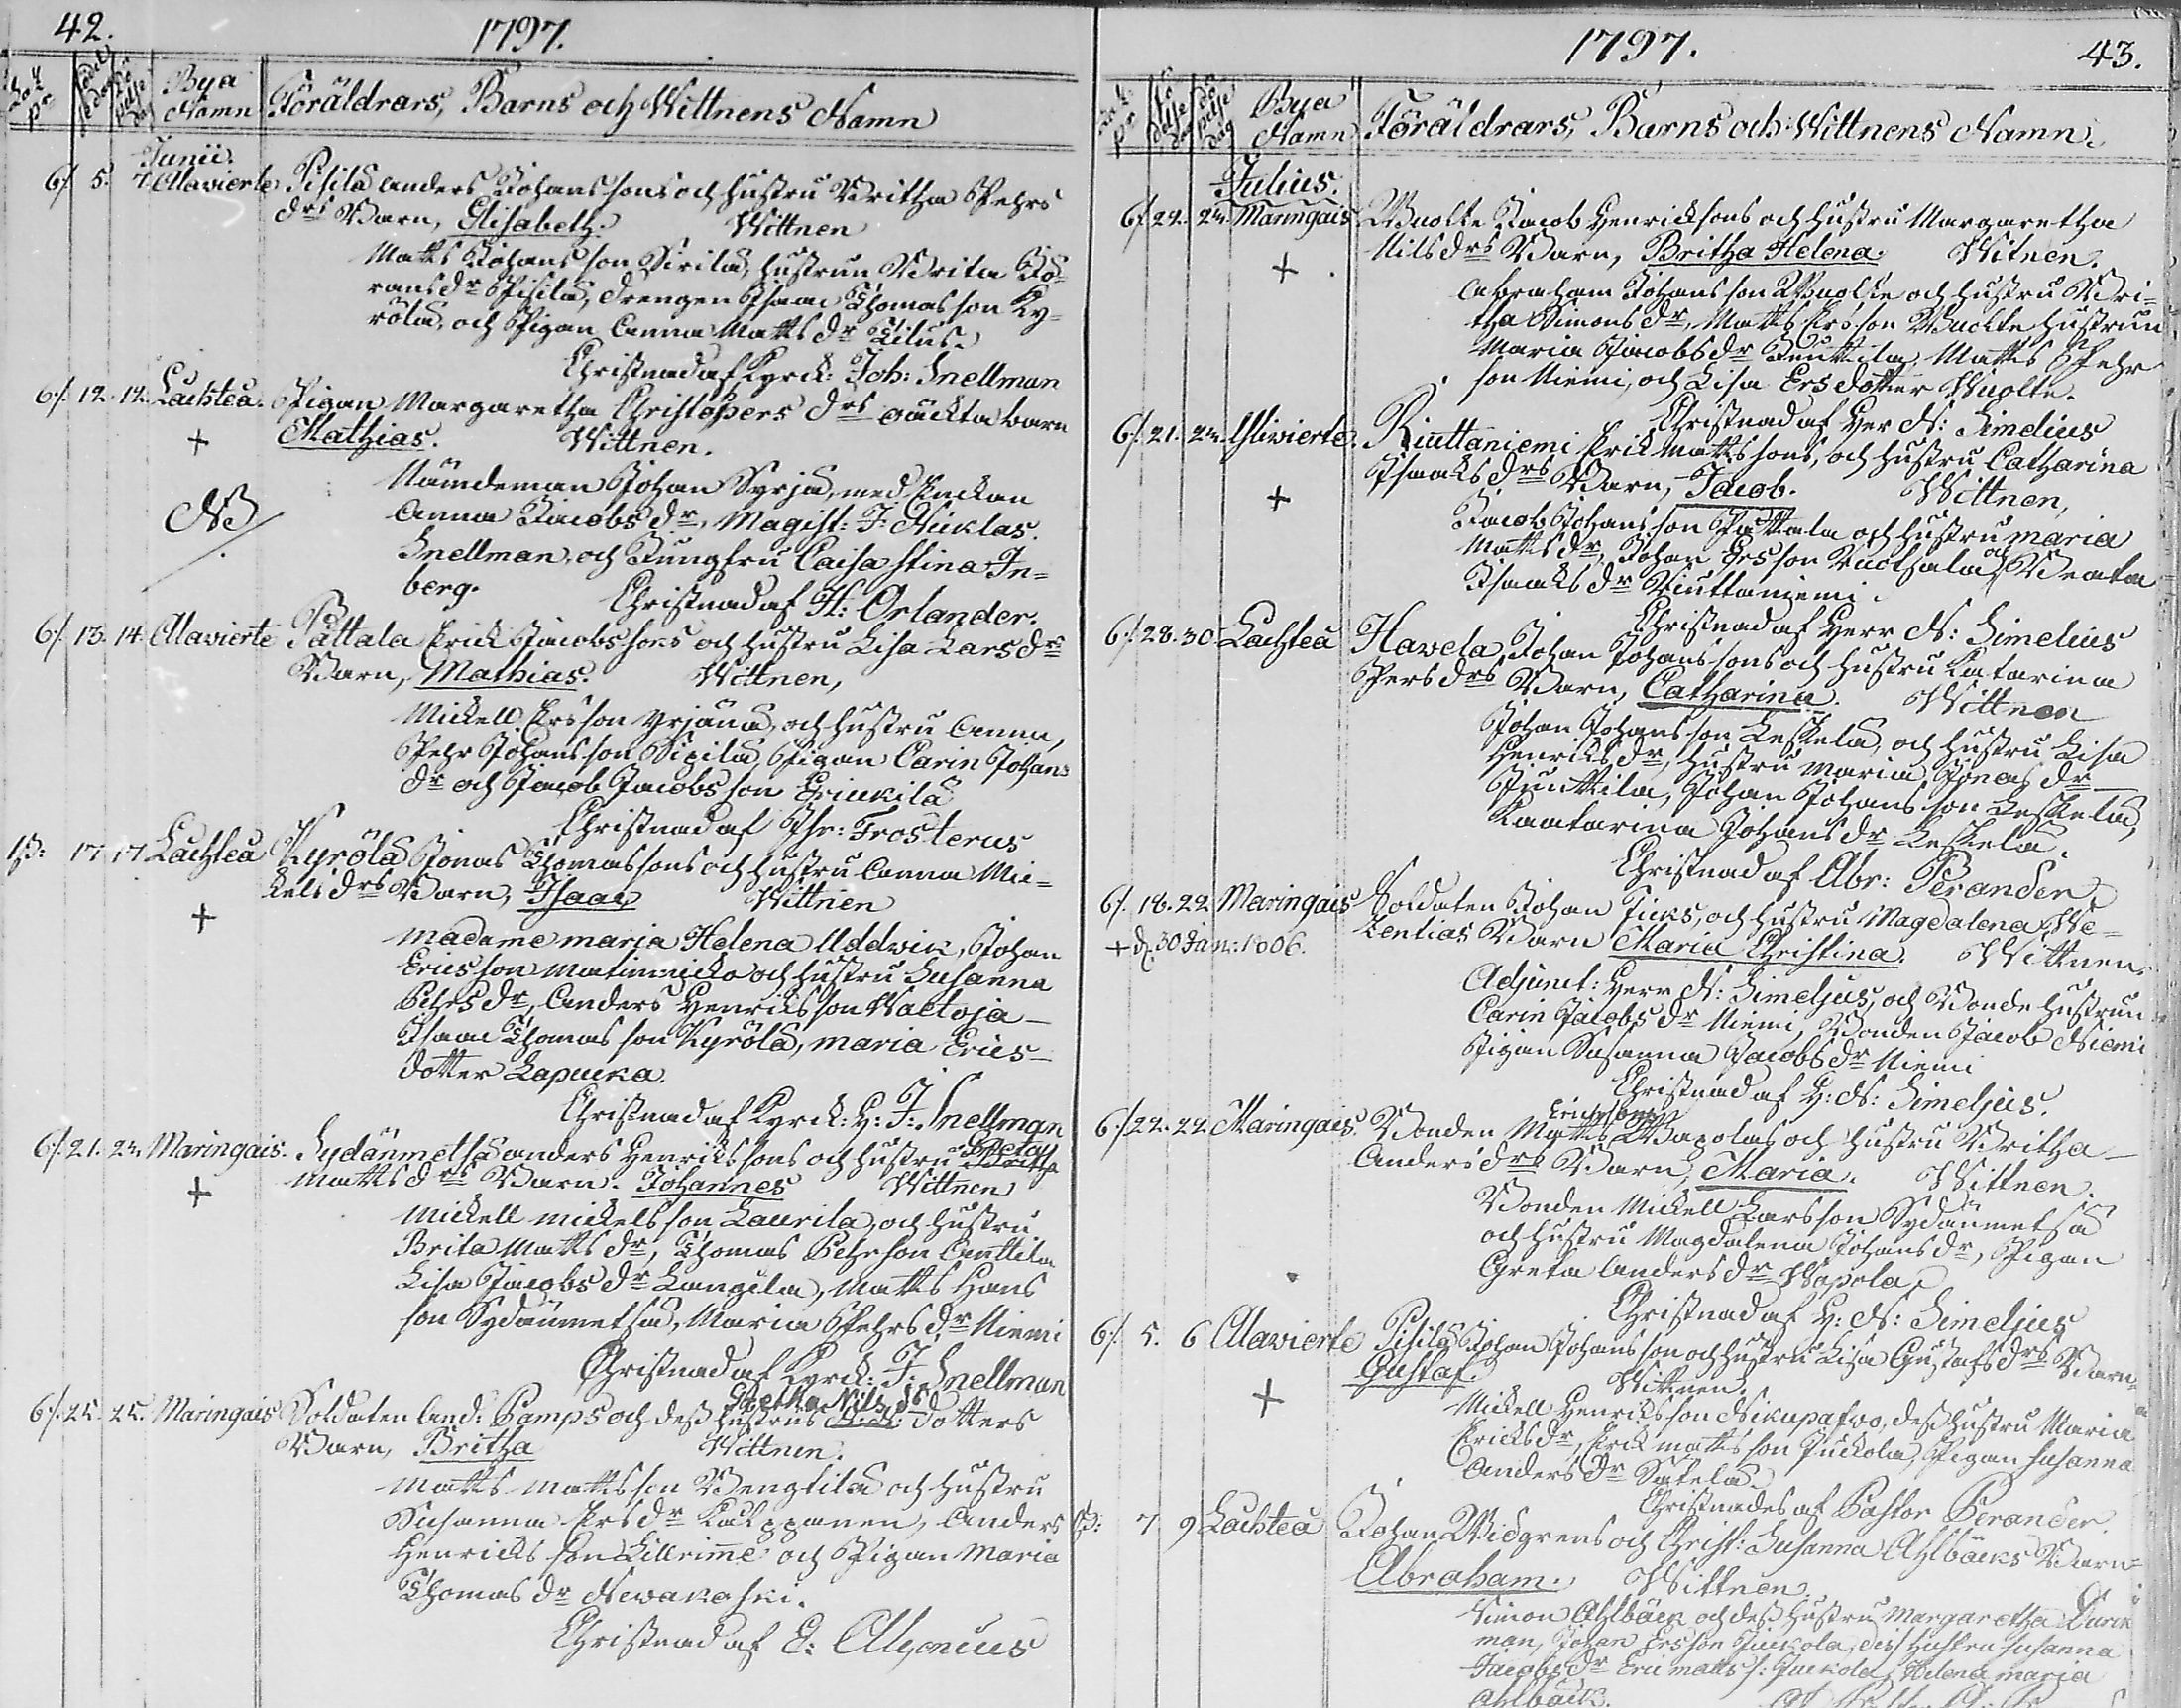 42.
1797.
Bya Namn
Föräldrars, Barns och Wittnens Namn
Junii.
6/. 5. 7. Alavierte Pisilä Anders Johanssons och hustru Britha Pehrs
drs Barn, Elisabeth. Wittnen
Matts Johansson Sirilä, hustrun Brita Jö-
ransdr Pisilä, drengen Isaac Thomasson Ky-
rölä, och Pigan Anna Mattsdr Tilus.
Christnad af Kyrck: Joh: Snellman
6/. 12. 12. Lachteå. Pigan Margaretha Christophers drs oäckta barn
+ Mathias. Wittnen.
Nämdeman Johan Syrjä, med Enckan
NB Anna Jacobsdr, Magist: J: Nicklas.
Snellman, och Jungfru Caisa Stina In-
berg.
Christnad af H: Orlander.
6/. 13. 14. Alavierte Pattala Erick Jacobssons och hustru Lisa Larsdrs
Barn, Mathias. Wittnen,
Mickell Ersson Yrjänä, och hustru Anna,
Pehr Johansson Sipilä, Pigan Carin Johans
dr och Jacob Jacobsson Erickilä
Christnad af Joh: Frosterus
ß: 17 17 Lachteå Kyrölä Jonas Thomassons och hustru Anna Mic-
kels drs Barn, Isaac Wittnen
+ Madame Maria Helena Uddvik, Johan
Ericsson Matinmicko och hustru Susanna
Pehrsdr, Anders Henriksson Waltoja
Isaac Thomasson Kyrölä, Maria Erics-
dotter Lapucka.
Christnad af Kyrck: H: J: Snellman
6/. 21. 24. Maringais. Sydänmetsä Anders Henrikssons och hustru Britha Greta
+ Mattsdrs Barn. Johannes Wittnen
Mickell Mickelsson Laurila, och hustru
Brita Mattsdr, Thomas Pehrson Anttila
Lisa Jacobsdr Langila, Matts Hans
son Sydänmetsä, Maria Pehrsdr Niemi
Christnad af Kyrck: J: Snellman
Gretha Nils ds
6/. 25. 25. Maringais Soldaten And: Pamps och dess hustrus N.N: dotters
Barn, Britha Wittnen.
Matts Mattsson Bengtilä och hustru
Susanna Ersdr Kakppanen, Anders
Henricks son Lillrimme och Pigan Maria
Thomasdr Newakoski.
Christnad af E: Alhonius
1797.
43.
Bya Namn
Föräldrars, Barns och Wittnens Namn.
Julius.
6/. 22. 24. Maringais Wuolte Jacob Henricksons och hustru Margaretha
+ Nilsdrs Barn, Britha Helena. Witnen.
Abraham Johansson Wuolte och hustru Bri-
tha Simonsdr, Matts Ersson Wuolte hustrun
Maria Jacobsdr Junttila, Matts Pehr
son Niemi, och Lisa Ersdotter Wuolte.
Christnad af Her N: Simelius
6/. 21. 24. Ylivierte. Riuttaniemi Erik Mattssons, och hustru Catharina
+ Isaacksdrs Barn, Jacob. Wittnen,
Jacob Johansson Pattala och hustru Maria
Mattsdr, Johan Ersson Knothala och Beata
Isaacksdr Riuttaniemi.
Christnad af Herr N: Simelius
6/. 28. 30. Lachteå Hawela Johan Johanssons och hustru Katarina
Persdrs Barn, Catharina. Wittnen
Johan Johansson Leskelä, och hustru Lisa
Henriksdr, hustru Maria Jönasdr
Junttila, Johan Johansson Leskelä,
Kaatarina Johansdr Leskelä.
Christnad af Abr: Perander.
6/. 18. 22 Maringais Soldaten Johan Ticks, och hustru Magdalena We-
+ d. 30 Jan: 1806. lentias Barn Maria Christina. Wittnen.
Adjunct: Herr N: Simeljus, och Bonde hustrun
Carin Jacobsdr Niemi, Bonden Jacob Niemi
Pigan Susanna Jacobsdr Niemi
Christnad af H: N: Simeljus.
Ericssons
6/. 22. 22. Maringais. Bonden Matts Wapolas och hustru Britha
Andersdrs Barn, Maria. Wittnen.
Bonden Mickell Larsson Sydänmetsä
och hustru Magdalena Johansdr, Pigan
Greta Andersdr Wapola.
Christnad af H: N: Simeljus
6/. 5. 6 Alavierte Pisilä Johan Johansson och hustru Lisa Gustafsdrs Barn
+ Gustaf. Wittnen.
Mickell Henriksson Nikupaawo, dess hustru Maria
Ericksdr, Erik Mattsson Juckola, Pigan Susanna
Andersdr Safela.
Christnades af Pastor Perander.
ß: 7 9 Lachteå Johan Widgrens och Christ: Susanna Ahlbäcks Barn
Abraham. Wittnen.
Simon Ahlbäck och dess hustru Margaretha Turk
man, Johan Ersson Juckola, dess hustru Susanna
Jacobsdr Eric Matts s: Juckola, Helena Maria
Ahlbäck.